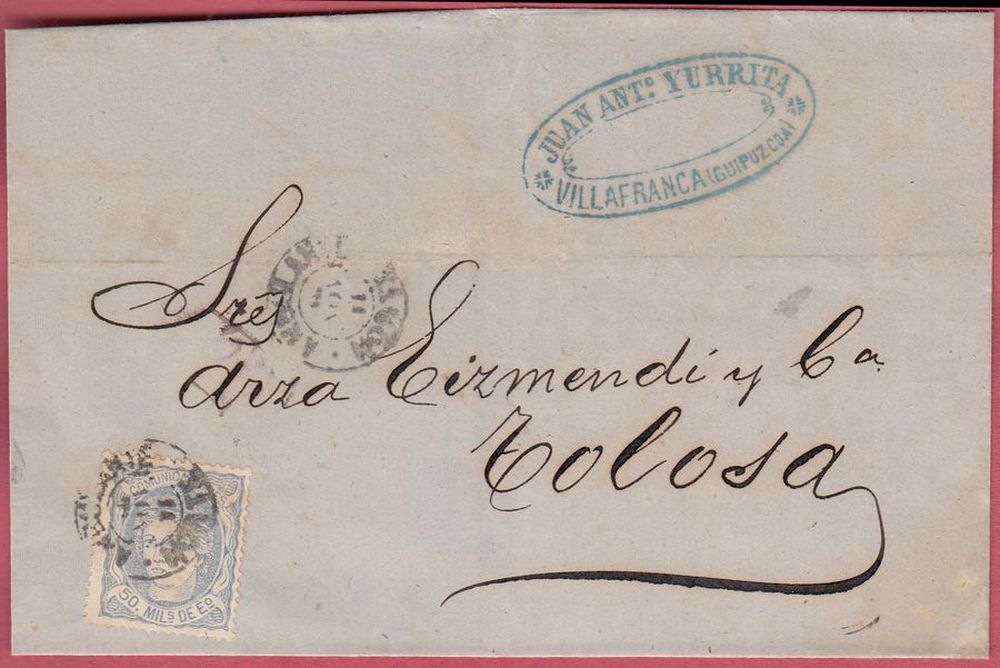 JUAN ANTº. YURRITA
VILLAFRANCA (GUIPUZCOA)
Sres
Arza Eizmendi y Cª
Tolosa
COMUNIC
50. MILS DE Eº